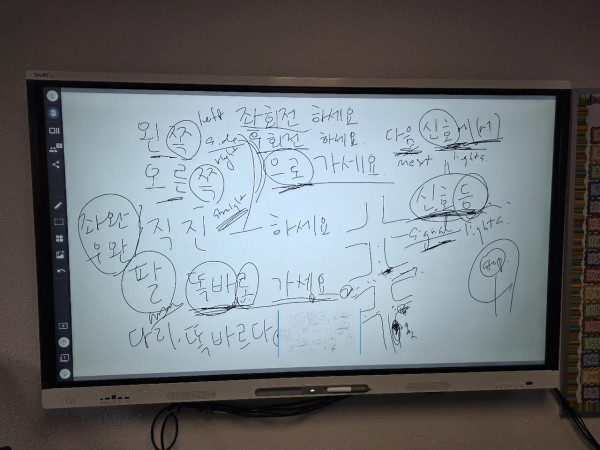 SMART
좌회전 하세요
왼쪽 left side 우회전 하세요 다음 신호에서
right 으로 가세요 next lights
오른쪽
신호등
좌완 직진 하세요 signal lights
우완
팔 똑바로 가세요
arm
다리. 똑바르다